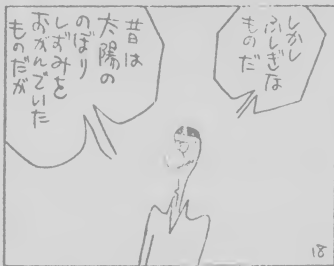 しかし
ふしぎな
ものだ
昔は
太陽の
のぼり
しずみを
おがんでいた
ものだが
18